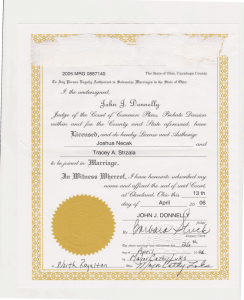 2006 MRG 0867140 The State of Ohio, Cuyahoga County
To Any Person Legally Authorized to Solemnize Marriages in the State of Ohio
I, the undersigned,
John J. Donnelly
Judge of the Court of Common Pleas, Probate Division
within and for the County and State aforesaid, have
Licensed, and do hereby License and Authorize
Joshua Necak and
Tracey A. Strzala
to be joined in Marriage.
In Witness Whereof, I have hereunto subscribed my
name and affixed the seal of said Court,
at Cleveland, Ohio this 13 th
day of April 06
JOHN J. DONNELLY
By Barbara
April
North Royalton
Mayor Cathy Luks